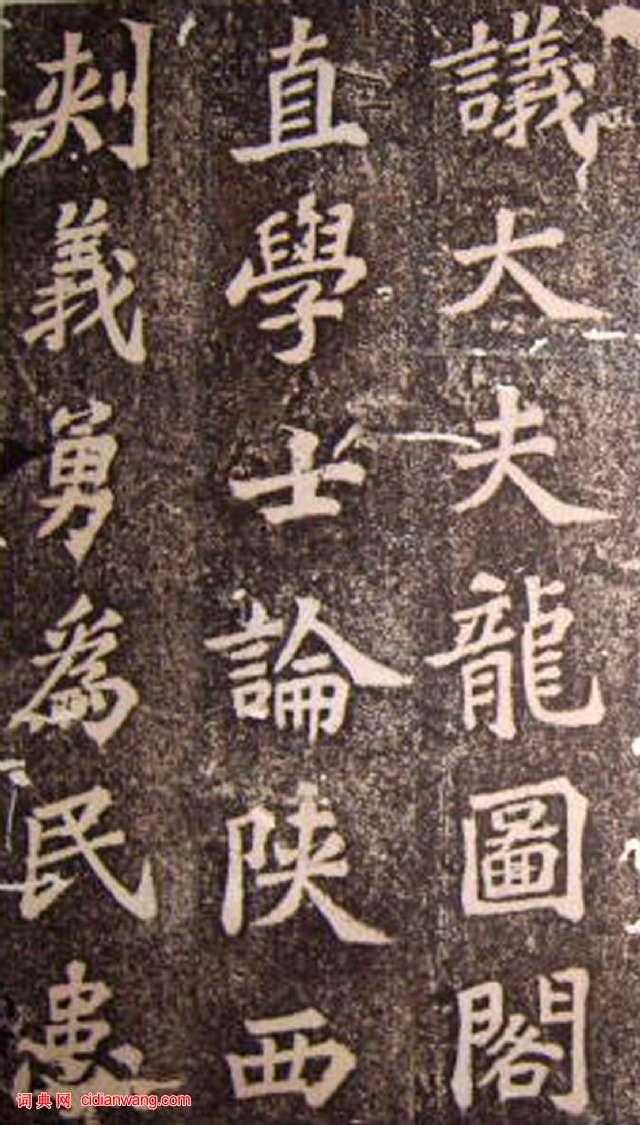 議大夫龍圖閣
直學士論陝西
刺義勇為民患
词典网 cidianwang.com